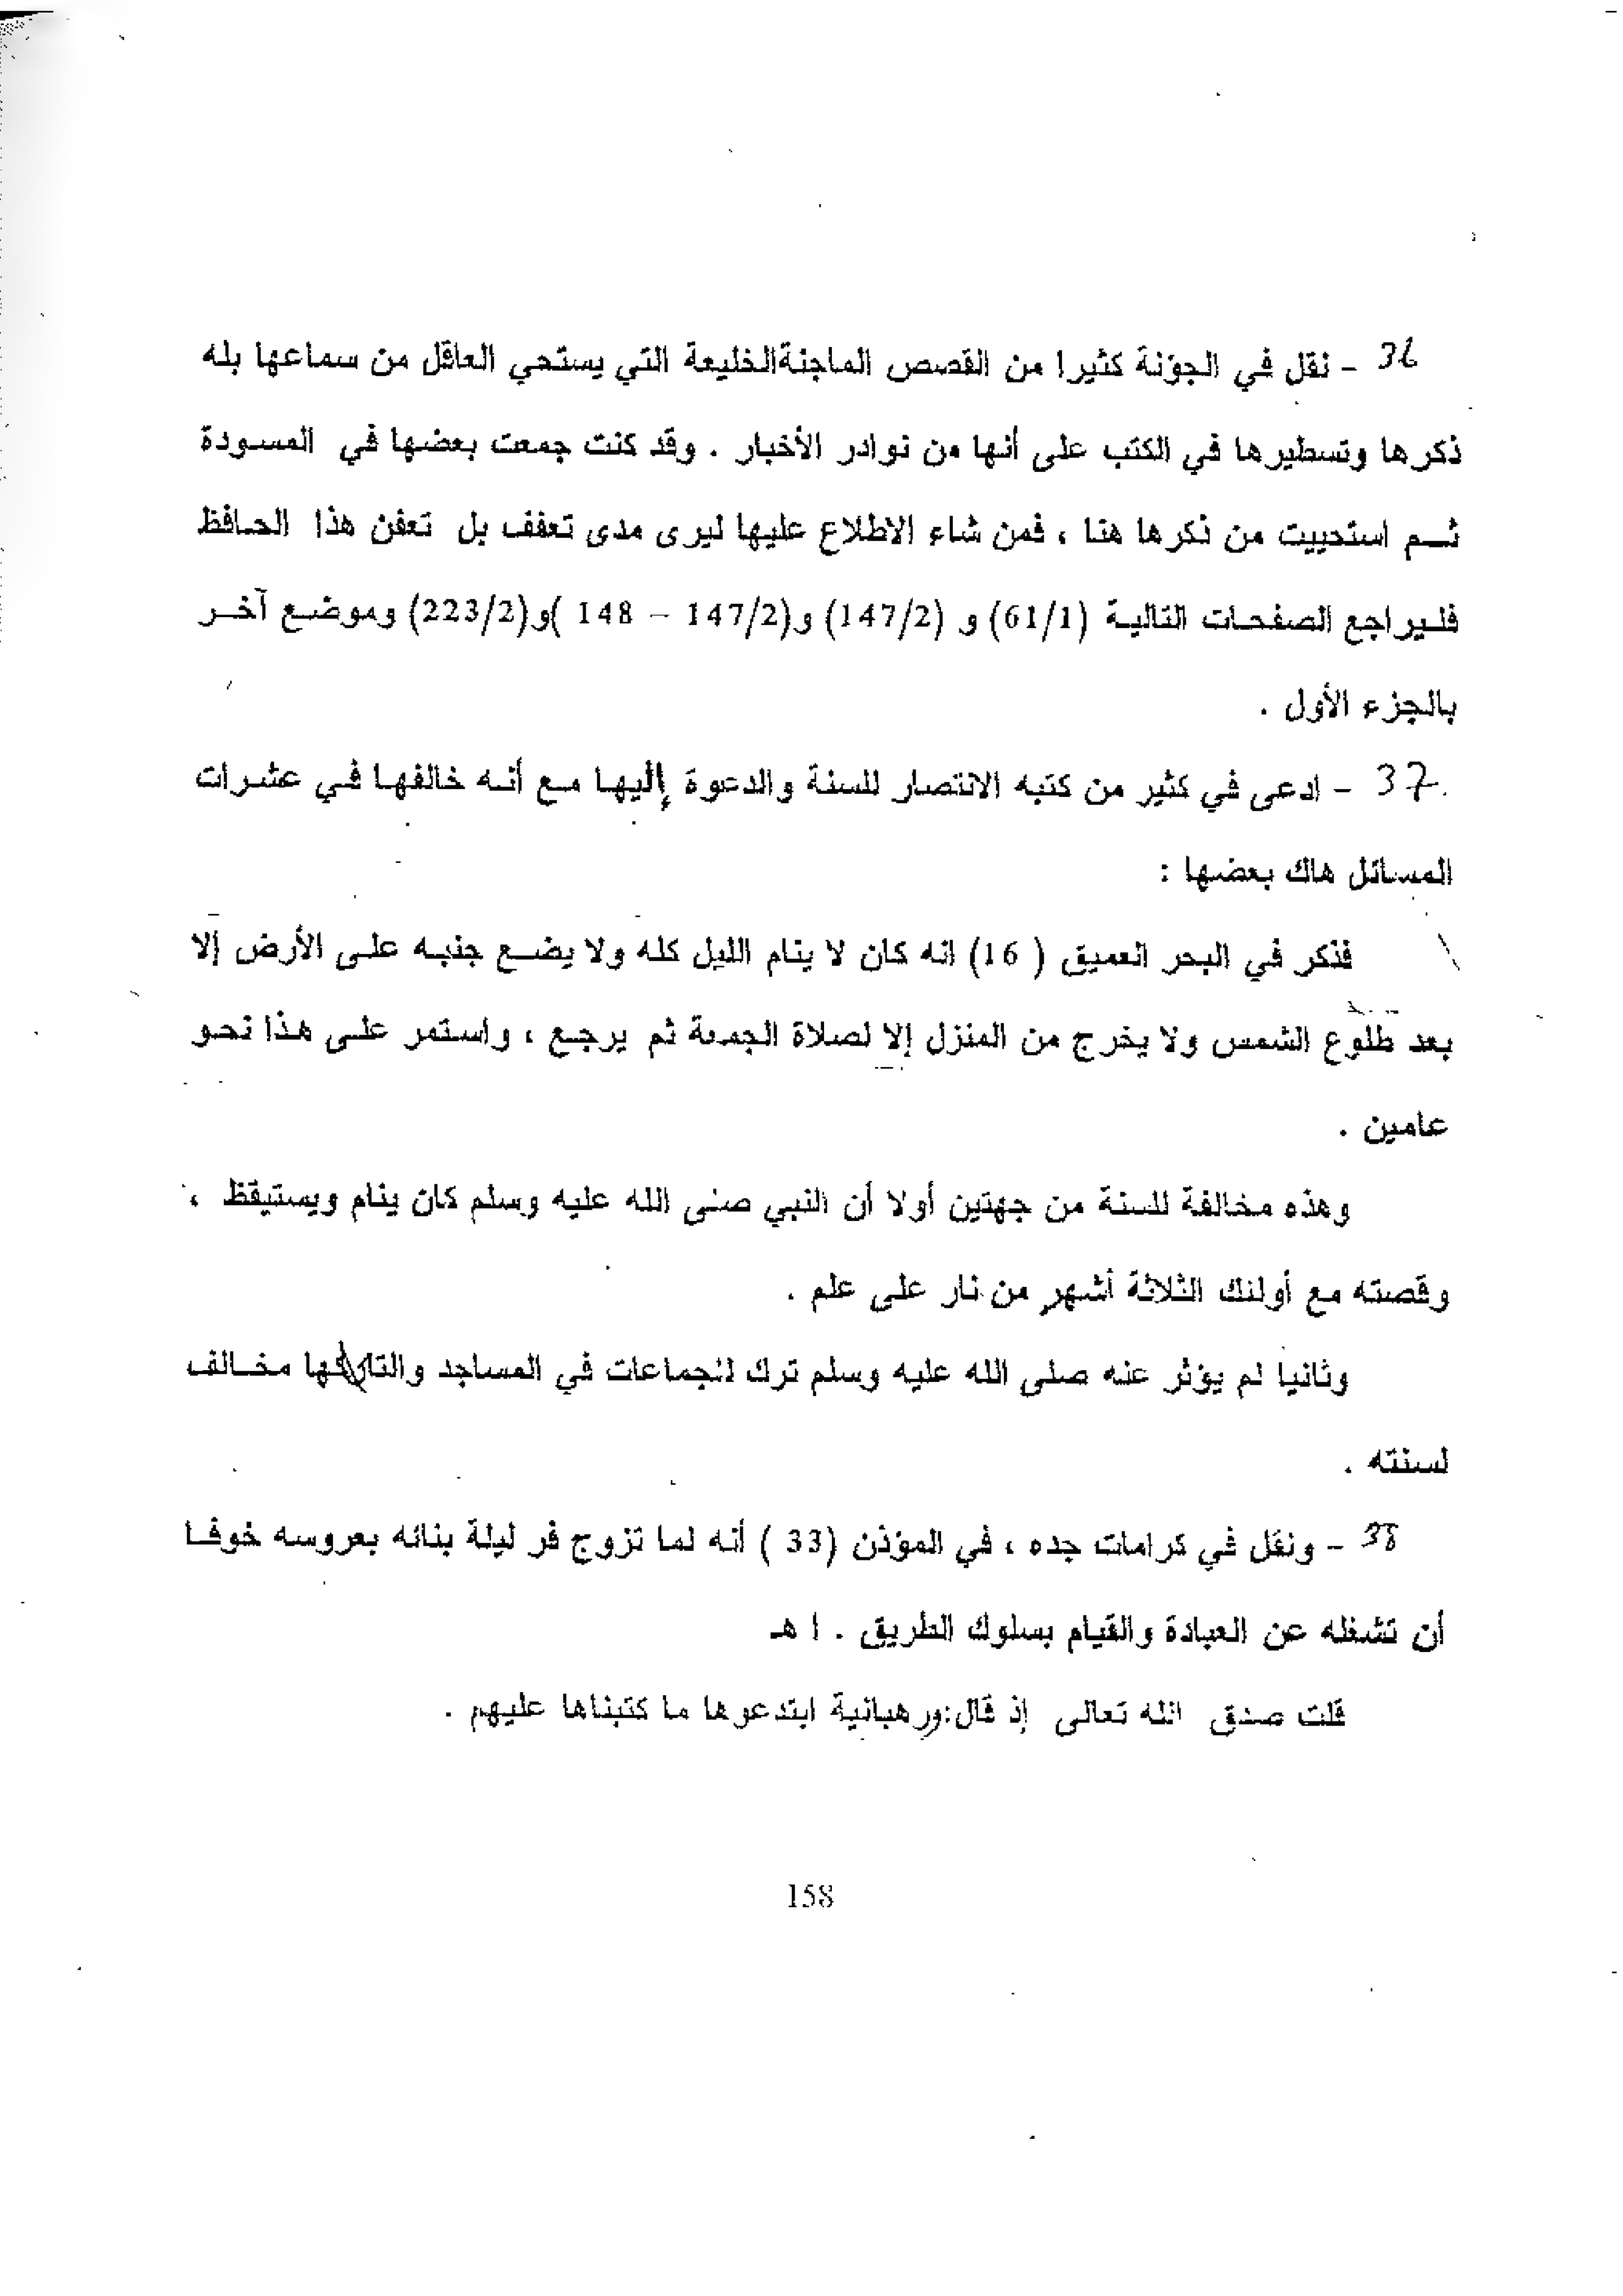 36 - نقل في الجؤنة كثيرا من القصص الماجنةالخليعة التي يستحي العاقل من سماعها بله
ذكرها وتسطيرها في الكتب على أنها من نوادر الأخبار . وقد كنت جمعت بعضها في المسودة
ثم استحييت من ذكرها هنا ، فمن شاء الاطلاع عليها ليرى مدى تعفف بل تعفن هذا الحافظ
فليراجع الصفحات التالية (61/1) و (147/2) و(147/2 – 148 )و(223/2) وموضع آخر
بالجزء الأول .
37 - ادعى في كثير من كتبه الانتصار للسنة والدعوة إليها مع أنه خالفها في عشرات
المسائل هاك بعضها :
فذكر في البحر العميق ( 16) انه كان لا ينام الليل كله ولا يضع جنبه على الأرض إلا
بعد طلوع الشمس ولا يخرج من المنزل إلا لصلاة الجمعة ثم يرجع ، واستمر على هذا نحو
عامين .
وهذه مخالفة للسنة من جهتين أولا أن النبي صلى الله عليه وسلم كان ينام ويستيقظ ،
وقصته مع أولئك الثلاثة أشهر من نار على علم .
وثانيا لم يؤثر عنه صلى الله عليه وسلم ترك للجماعات في المساجد والتارك لها مخالف
لسنته .
38 - ونقل في كرامات جده ، في المؤذن (33 ) أنه لما تزوج فر ليلة بنائه بعروسه خوفا
أن تشغله عن العبادة والقيام بسلوك الطريق . ا هـ
قلت صدق الله تعالى إذ قال:ورهبانية ابتدعوها ما كتبناها عليهم .
158